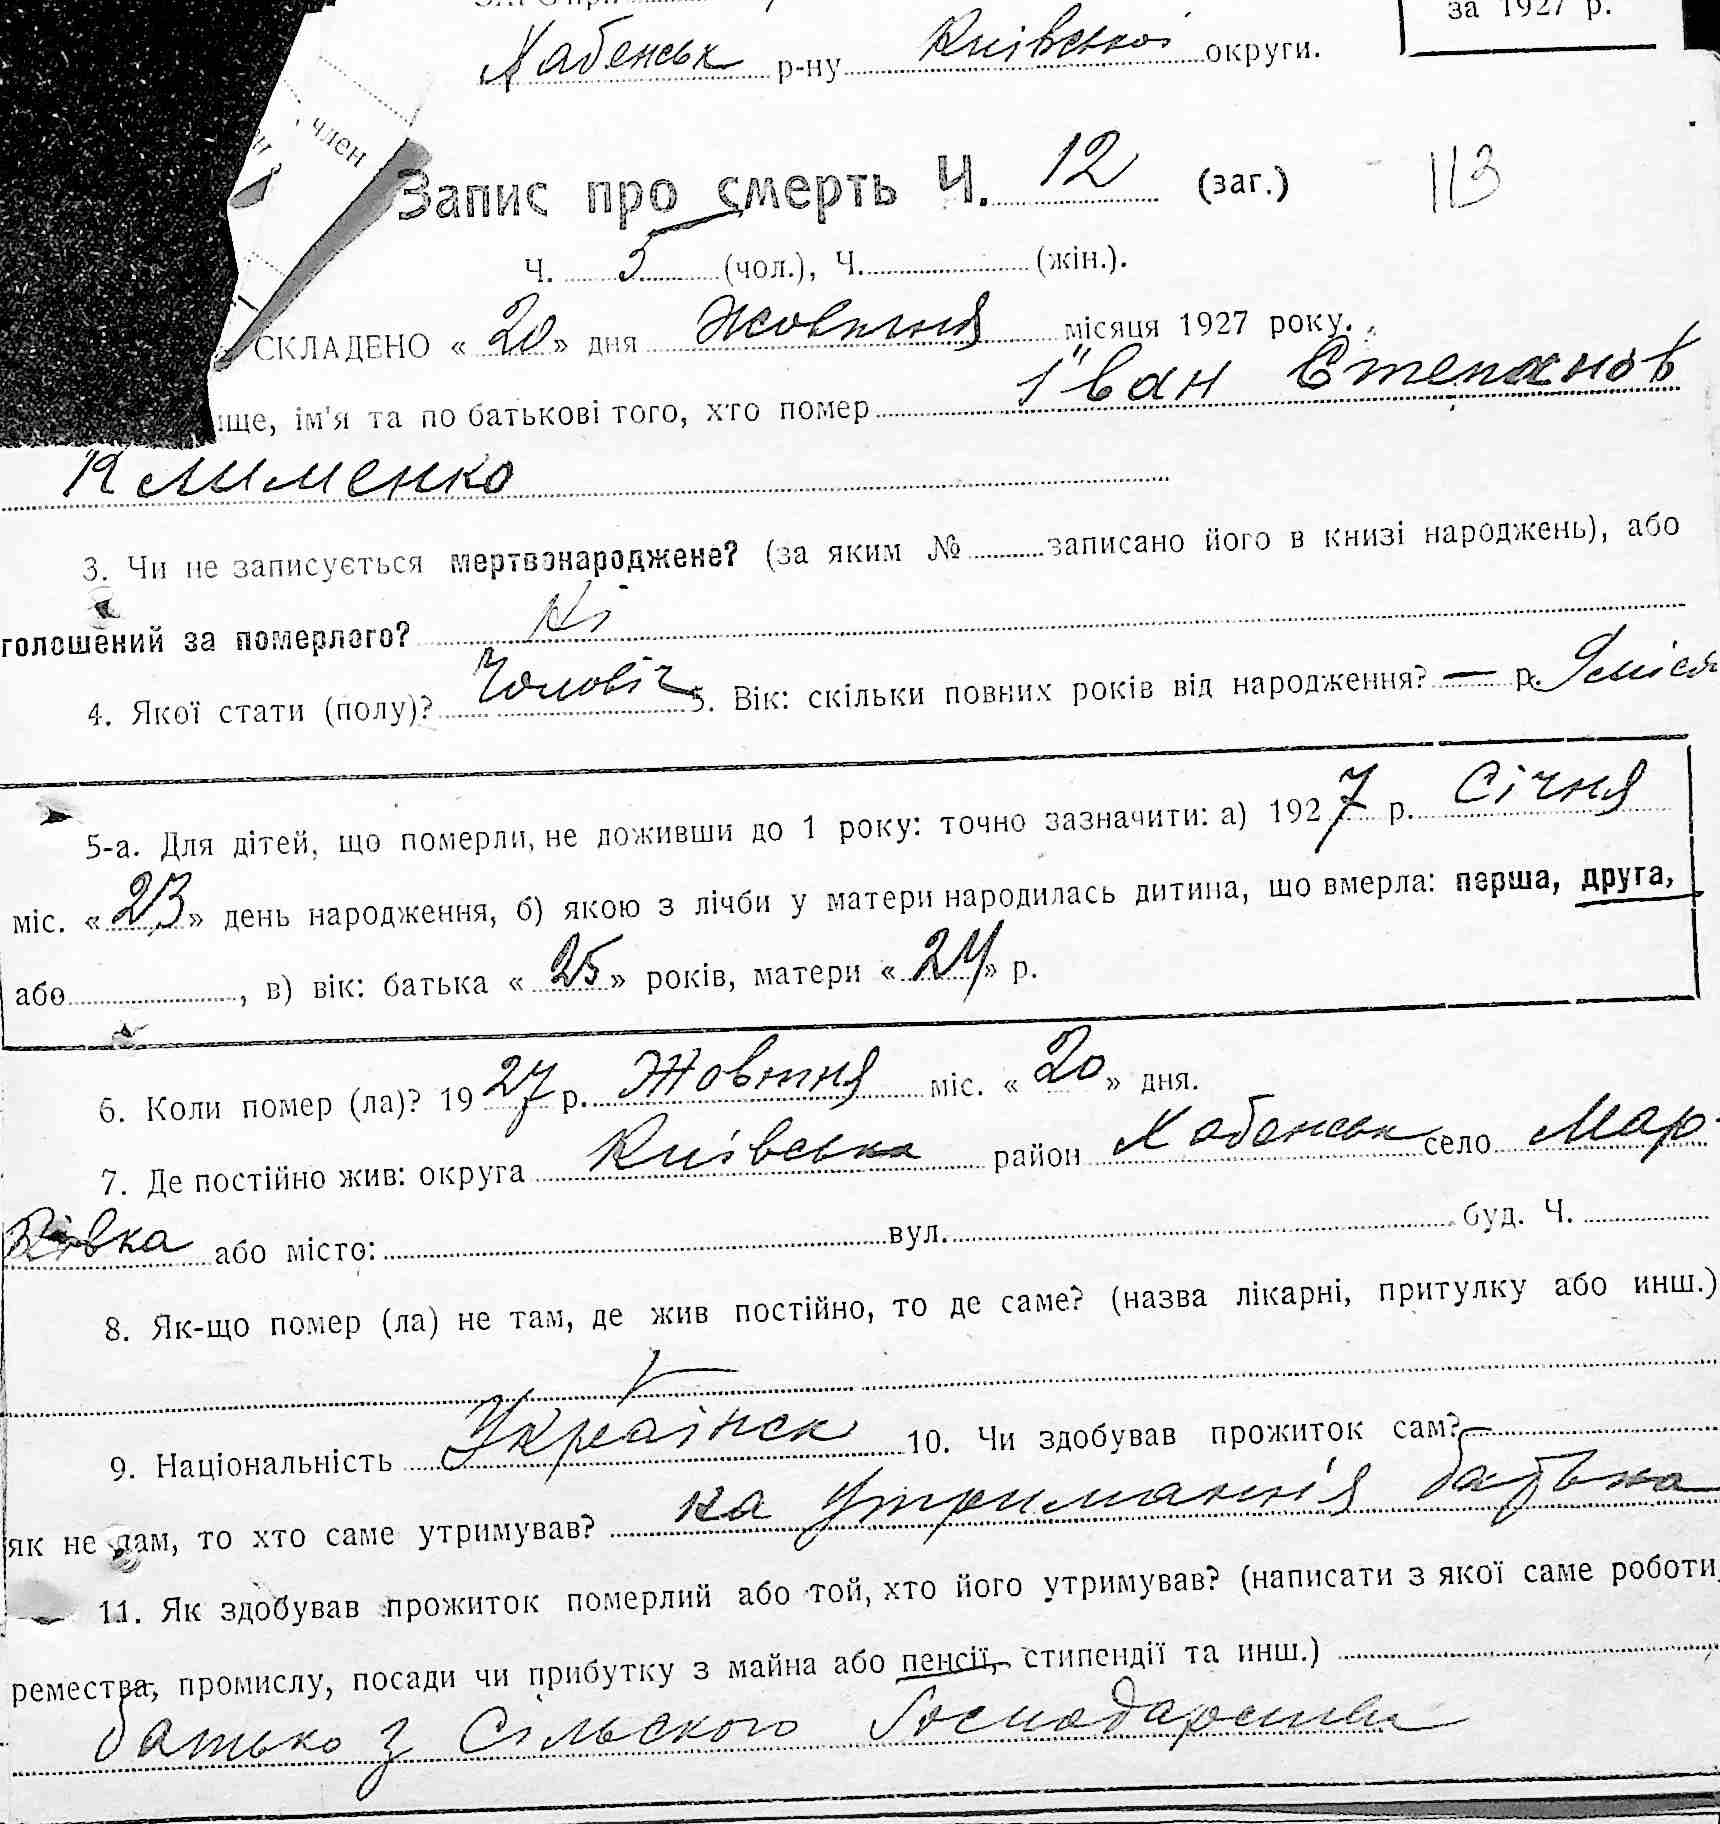 за 1927 р.
Хабенськ р-ну Київської округи.
член
Запис про смерть Ч. 12 (заг.) 113
Ч. 5 (чол.), Ч. (жін.).
СКЛАДЕНО « 20 » дня Жовтня місяця 1927 року.
ще, ім'я та по батькові того, хто помер Іван Степанов
Клименко
3. Чи не записується мертвонароджене? (за яким № записано його в книзі народжень), або
голошений за померлого? Ні
4. Якої стати (полу)? Чоловіч 5. Вік: скільки повних років від народження? — р.
5-а. Для дітей, що померли, не доживши до 1 року: точно зазначити: а) 1927 р. Січня
міс. « 23 » день народження, б) якою з лічби у матери народилась дитина, що вмерла: перша, друга,
або , в) вік: батька « 25 » років, матери « 24 » р.
6. Коли помер (ла)? 1927 р. Жовтня міс. « 20 » дня.
7. Де постійно жив: округа Київська район Хабенськ село Мар-
або місто: вул. буд. Ч.
8. Як-що помер (ла) не там, де жив постійно, то де саме? (назва лікарні, притулку або инш.)
9. Національність Українск 10. Чи здобував прожиток сам? —
як не сам, то хто саме утримував? на утриманнія батька
11. Як здобував прожиток померлий або той, хто його утримував? (написати з якої саме роботи,
ремества, промислу, посади чи прибутку з майна або пенсії, стипендії та инш.)
батько з Сільского Господарства